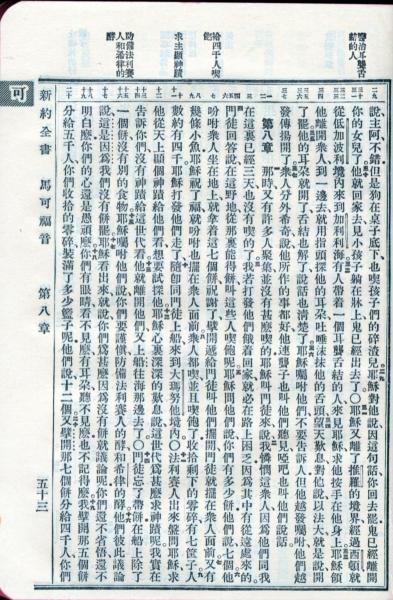 醫治耳聾舌
結的人
給四千人喫
飽
求主顯神蹟
防備法利賽
人和希律的
酵
說主阿不錯但是狗在桌子底下也喫孩子們的碎渣兒耶穌對他說因這句話你回去罷鬼已經離開
你的女兒了他就回家去見小孩子躺在牀上鬼已經出去了〇耶穌又離了推羅的境界經過西頓就
從低加波利境內來到加利利海有人帶着一個耳聾舌結的人來見耶穌求他按手在他身上耶穌領
他離開眾人到一邊去就用指頭探他的耳朶吐唾沫抹他的舌頭望天歎息對他說以法大就是說開
了罷他的耳朶就開了舌結也解了說話也清楚了耶穌囑咐他們不要告訴人但他越發囑咐他們越
發傳揚開了眾人分外希奇說他所作的事都好他連聾子也叫他們聽見啞吧也叫他們說話
第八章 那時又有許多人聚集並沒有甚麼喫的耶穌叫門徒來說我憐憫這眾人因爲他們同我
在這裏已經三天也沒有喫的了我若打發他們餓着回家就必在路上困乏因爲其中有從遠處來的
門徒回答說在這野地從那裏能得餅叫這些人喫飽呢耶穌問他們說你們有多少餅他們說七個他
吩咐眾人坐在地上就拿着這七個餅祝謝了擘開遞給門徒叫他們擺開門徒就擺在眾人面前又有
幾條小魚耶穌祝了福就吩咐也擺在眾人面前眾人都喫並且喫飽了收拾剩下的零碎有七筐子人
數約有四千耶穌打發他們走了隨卽同門徒上船來到大瑪努他境內〇法利賽人出來盤問耶穌求
他從天上顯個神蹟給他們看想要試探他耶穌心裏深深的歎息說這世代爲甚麼求神蹟呢我實在
告訴你們沒有神蹟給這世代看他就離開他們又上船往海那邊去了〇門徒忘了帶餅在船上除了
一個餅沒有別的食物耶穌囑咐他們說你們要謹愼防備法利賽人的酵和希律的酵他們彼此議論
說這是因爲我們沒有餅罷耶穌看出來就說你們爲甚麼因爲沒有餅就議論呢你們還不省悟還不
明白麼你們的心還是愚頑麼你們有眼睛看不見麼有耳朶聽不見麼也不記得麼我擘開那五個餅
分給五千人你們收拾的零碎裝滿了多少籃子呢他們說十二個又擘開那七個餅分給四千人你們
可
新約全書 馬可福音 第八章 五十三